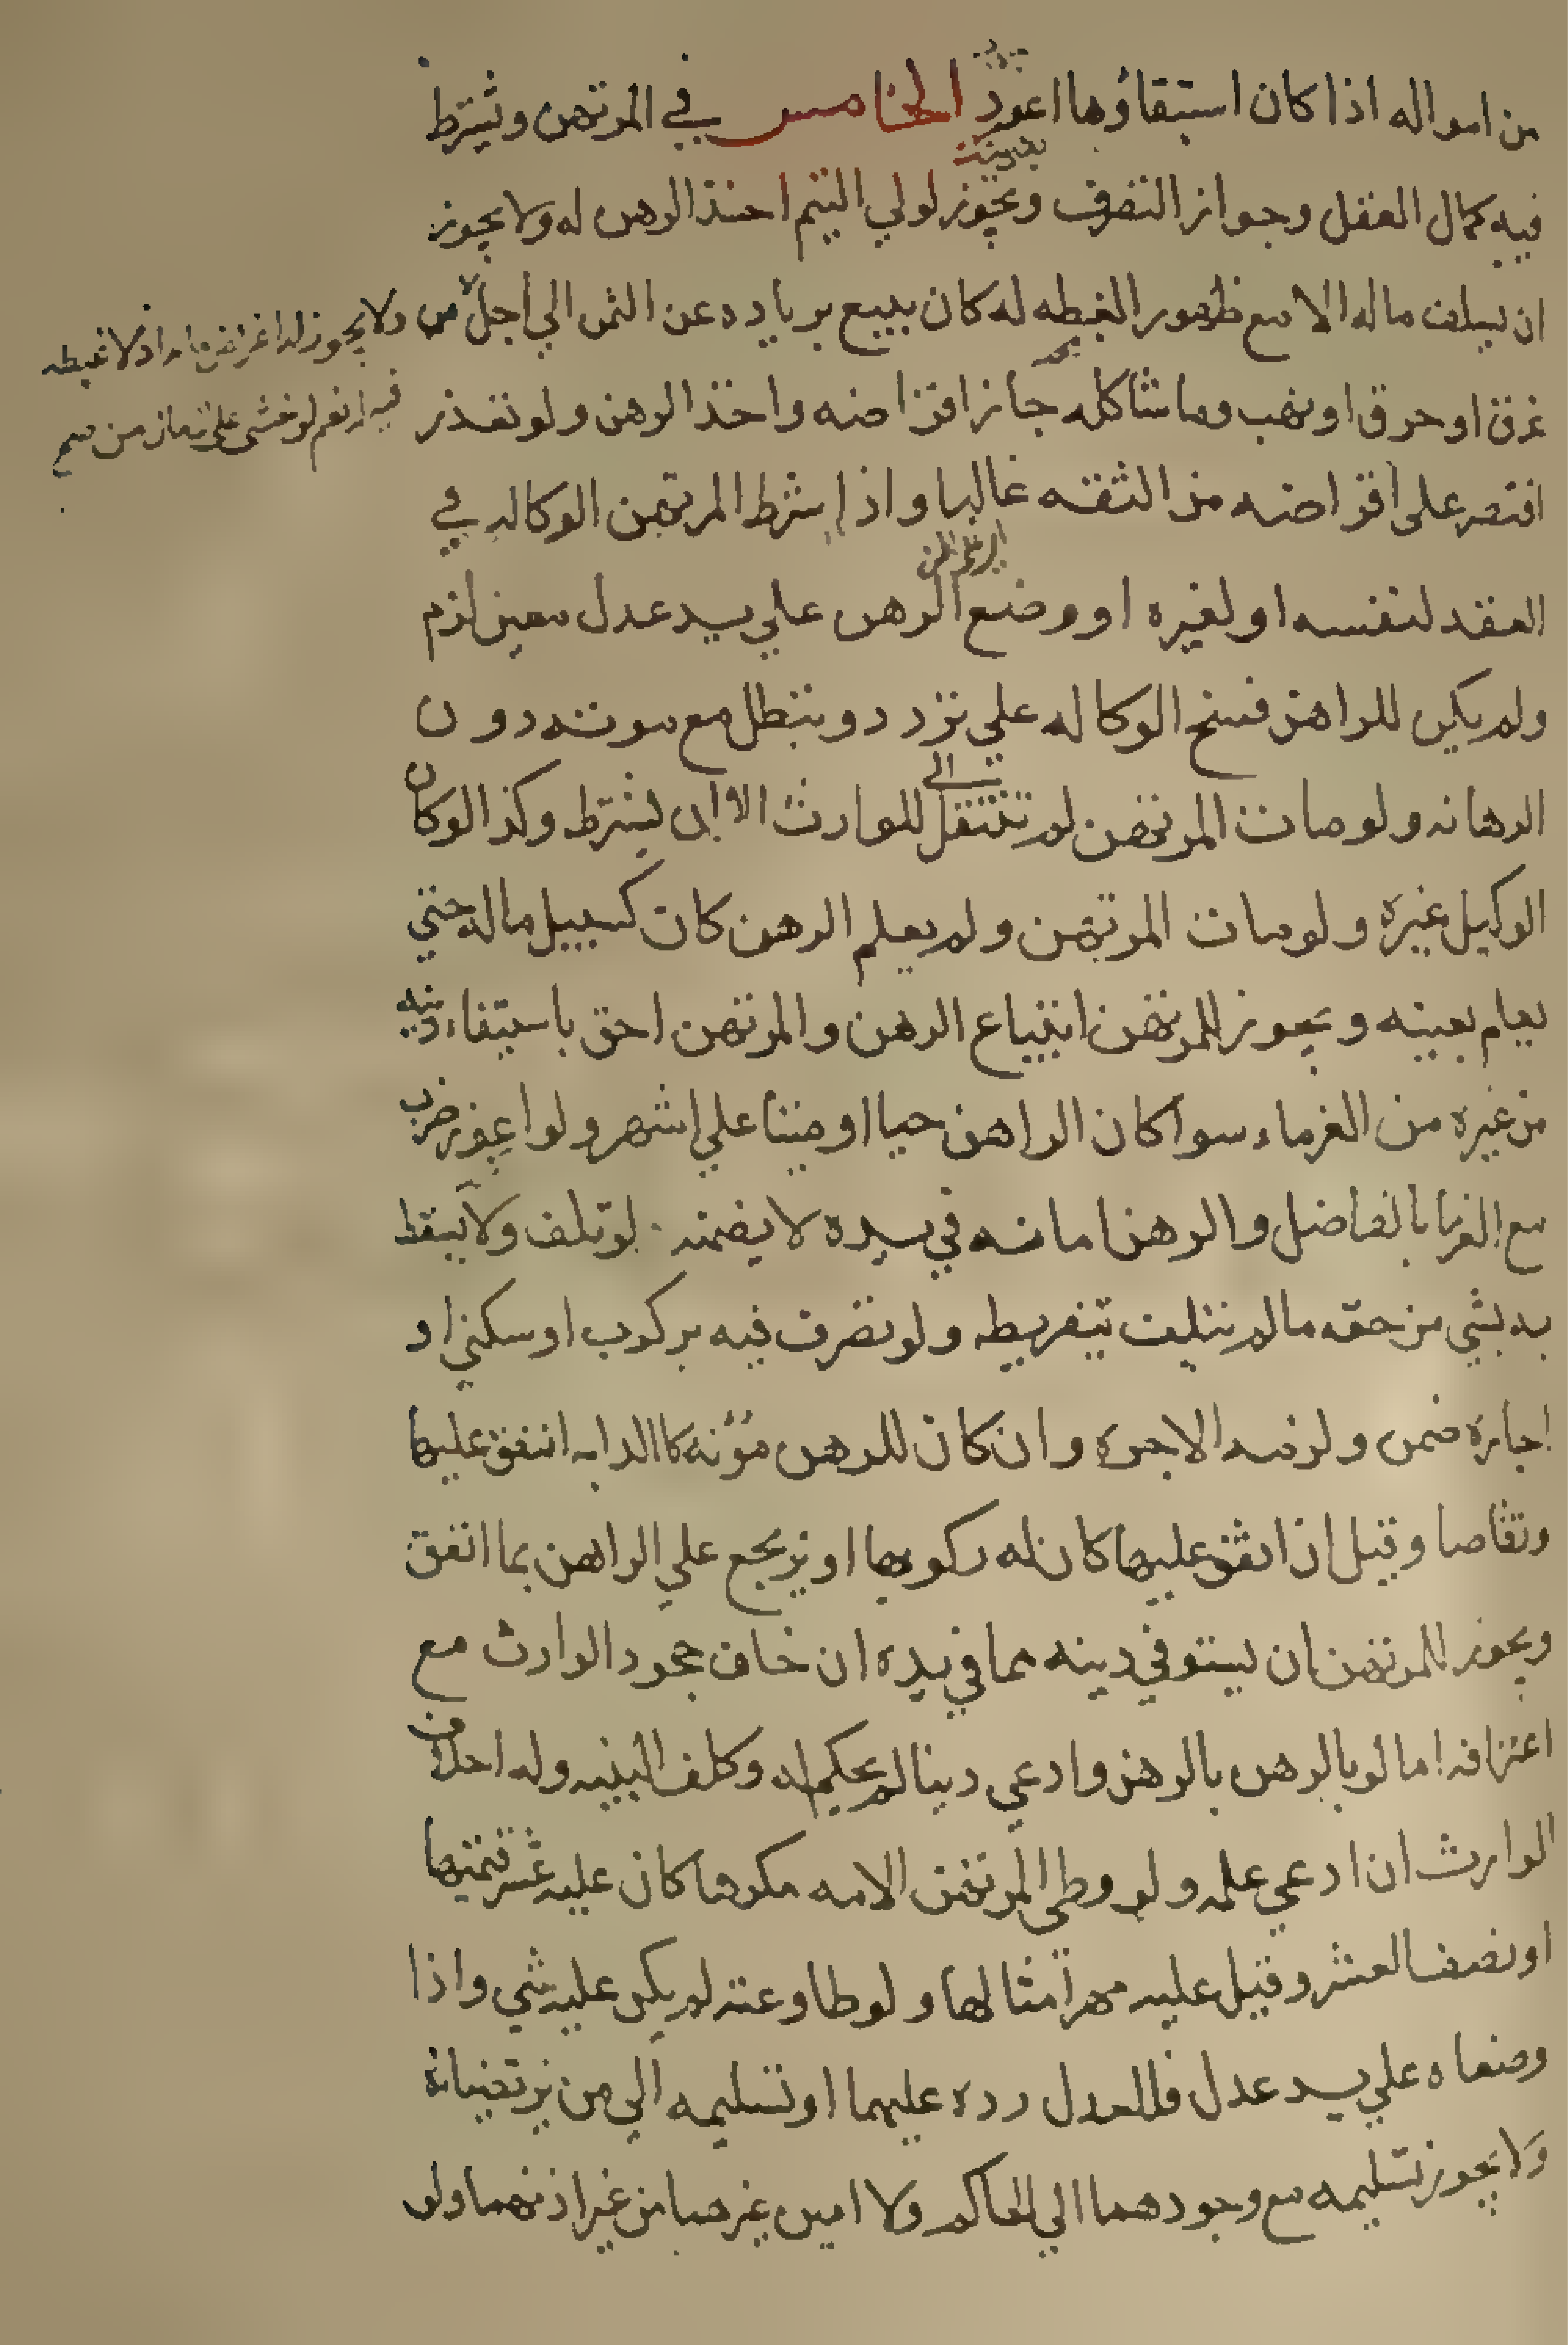 من امواله اذا كان استبقاؤها اعود الخامس في المرتهن ويشترط
فيه كمال العقل وجواز التصرف ويجوز لولي اليتيم اخذ الرهن له ولا يجوز
ان يسلف ماله الا مع ظهور الغبطه له كان يبيع بزياده عن الثمن الي اجل
ولا يجوز له اقراض ماله اذ لا غبطه
غرق او حرق او نهب وما شاكله جاز اقراضه واخذ الرهن ولو تعذر
فيه نعم لو خشي على المال من
اقتصر على اقراضه من الثقه غالبا واذا شرط المرتهن الوكاله في
العقد لنفسه او لغيره او وضع الرهن علي يد عدل معين لزم
ولم يكن للراهن فسخ الوكاله علي تردد وتبطل مع موته دون
الرهانه ولو مات المرتهن لم تنتقل للوارث الا ان يشترط وكذا لو كان
الوكيل غيره ولو مات المرتهن ولم يعلم الرهن كان كسبيل ماله حتي
يعلم بعينه ويجوز للمرتهن ابتياع الرهن والمرتهن احق باستيفاء دينه
من غيره من الغرماء سوا كان الراهن حيا او ميتا علي اشهر ولو اعوز ضرب
مع الغرما بالفاضل والرهن امانه في يده لا يضمنه لو تلف ولا يسقط
به شي من حقه ما لم يتلف بتفريطه ولو تصرف فيه بركوب او سكني او
اجارة ضمن ولزمه الاجرة وان كان للرهن مؤنه كاالدابه انفق عليها
وتقاصا وقيل اذا انفق عليها كان له ركوبها او يرجع علي الراهن بما انفق
ويجوز للمرتهن ان يستوفي دينه مما في يده ان خاف جحود الوارث مع
اعترافه اما لو بالرهن بالرهن وادعي دينا لم يحكم له وكلف البينه وله احلاف
الوارث ان ادعي علمه ولو وطي المرتهن الامه مكرها كان عليه عشر قيمتها
او نصف العشر وقيل عليه مهر امثالها ولو طاوعته لم يكن عليه شي واذا
وضعاه علي يد عدل فللعدل رده عليهما او تسليمه الي من يرتضيانه
ولا يجوز تسليمه مع وجودهما الي الحاكم ولا امين غيرهما من غير اذنهما ولو